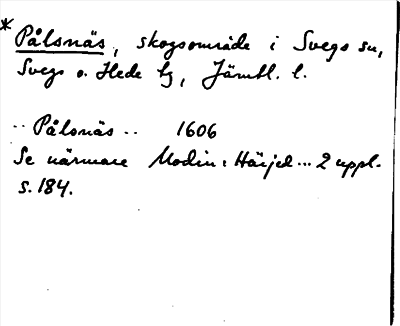 * Pålsnäs, skogsområde i Svegs sn,
Svegs o. Hede tg, Jämtl. l.
.. Pålsnäs .. 1606
Se närmare Modin: Härjed... 2 uppl.
s. 184.